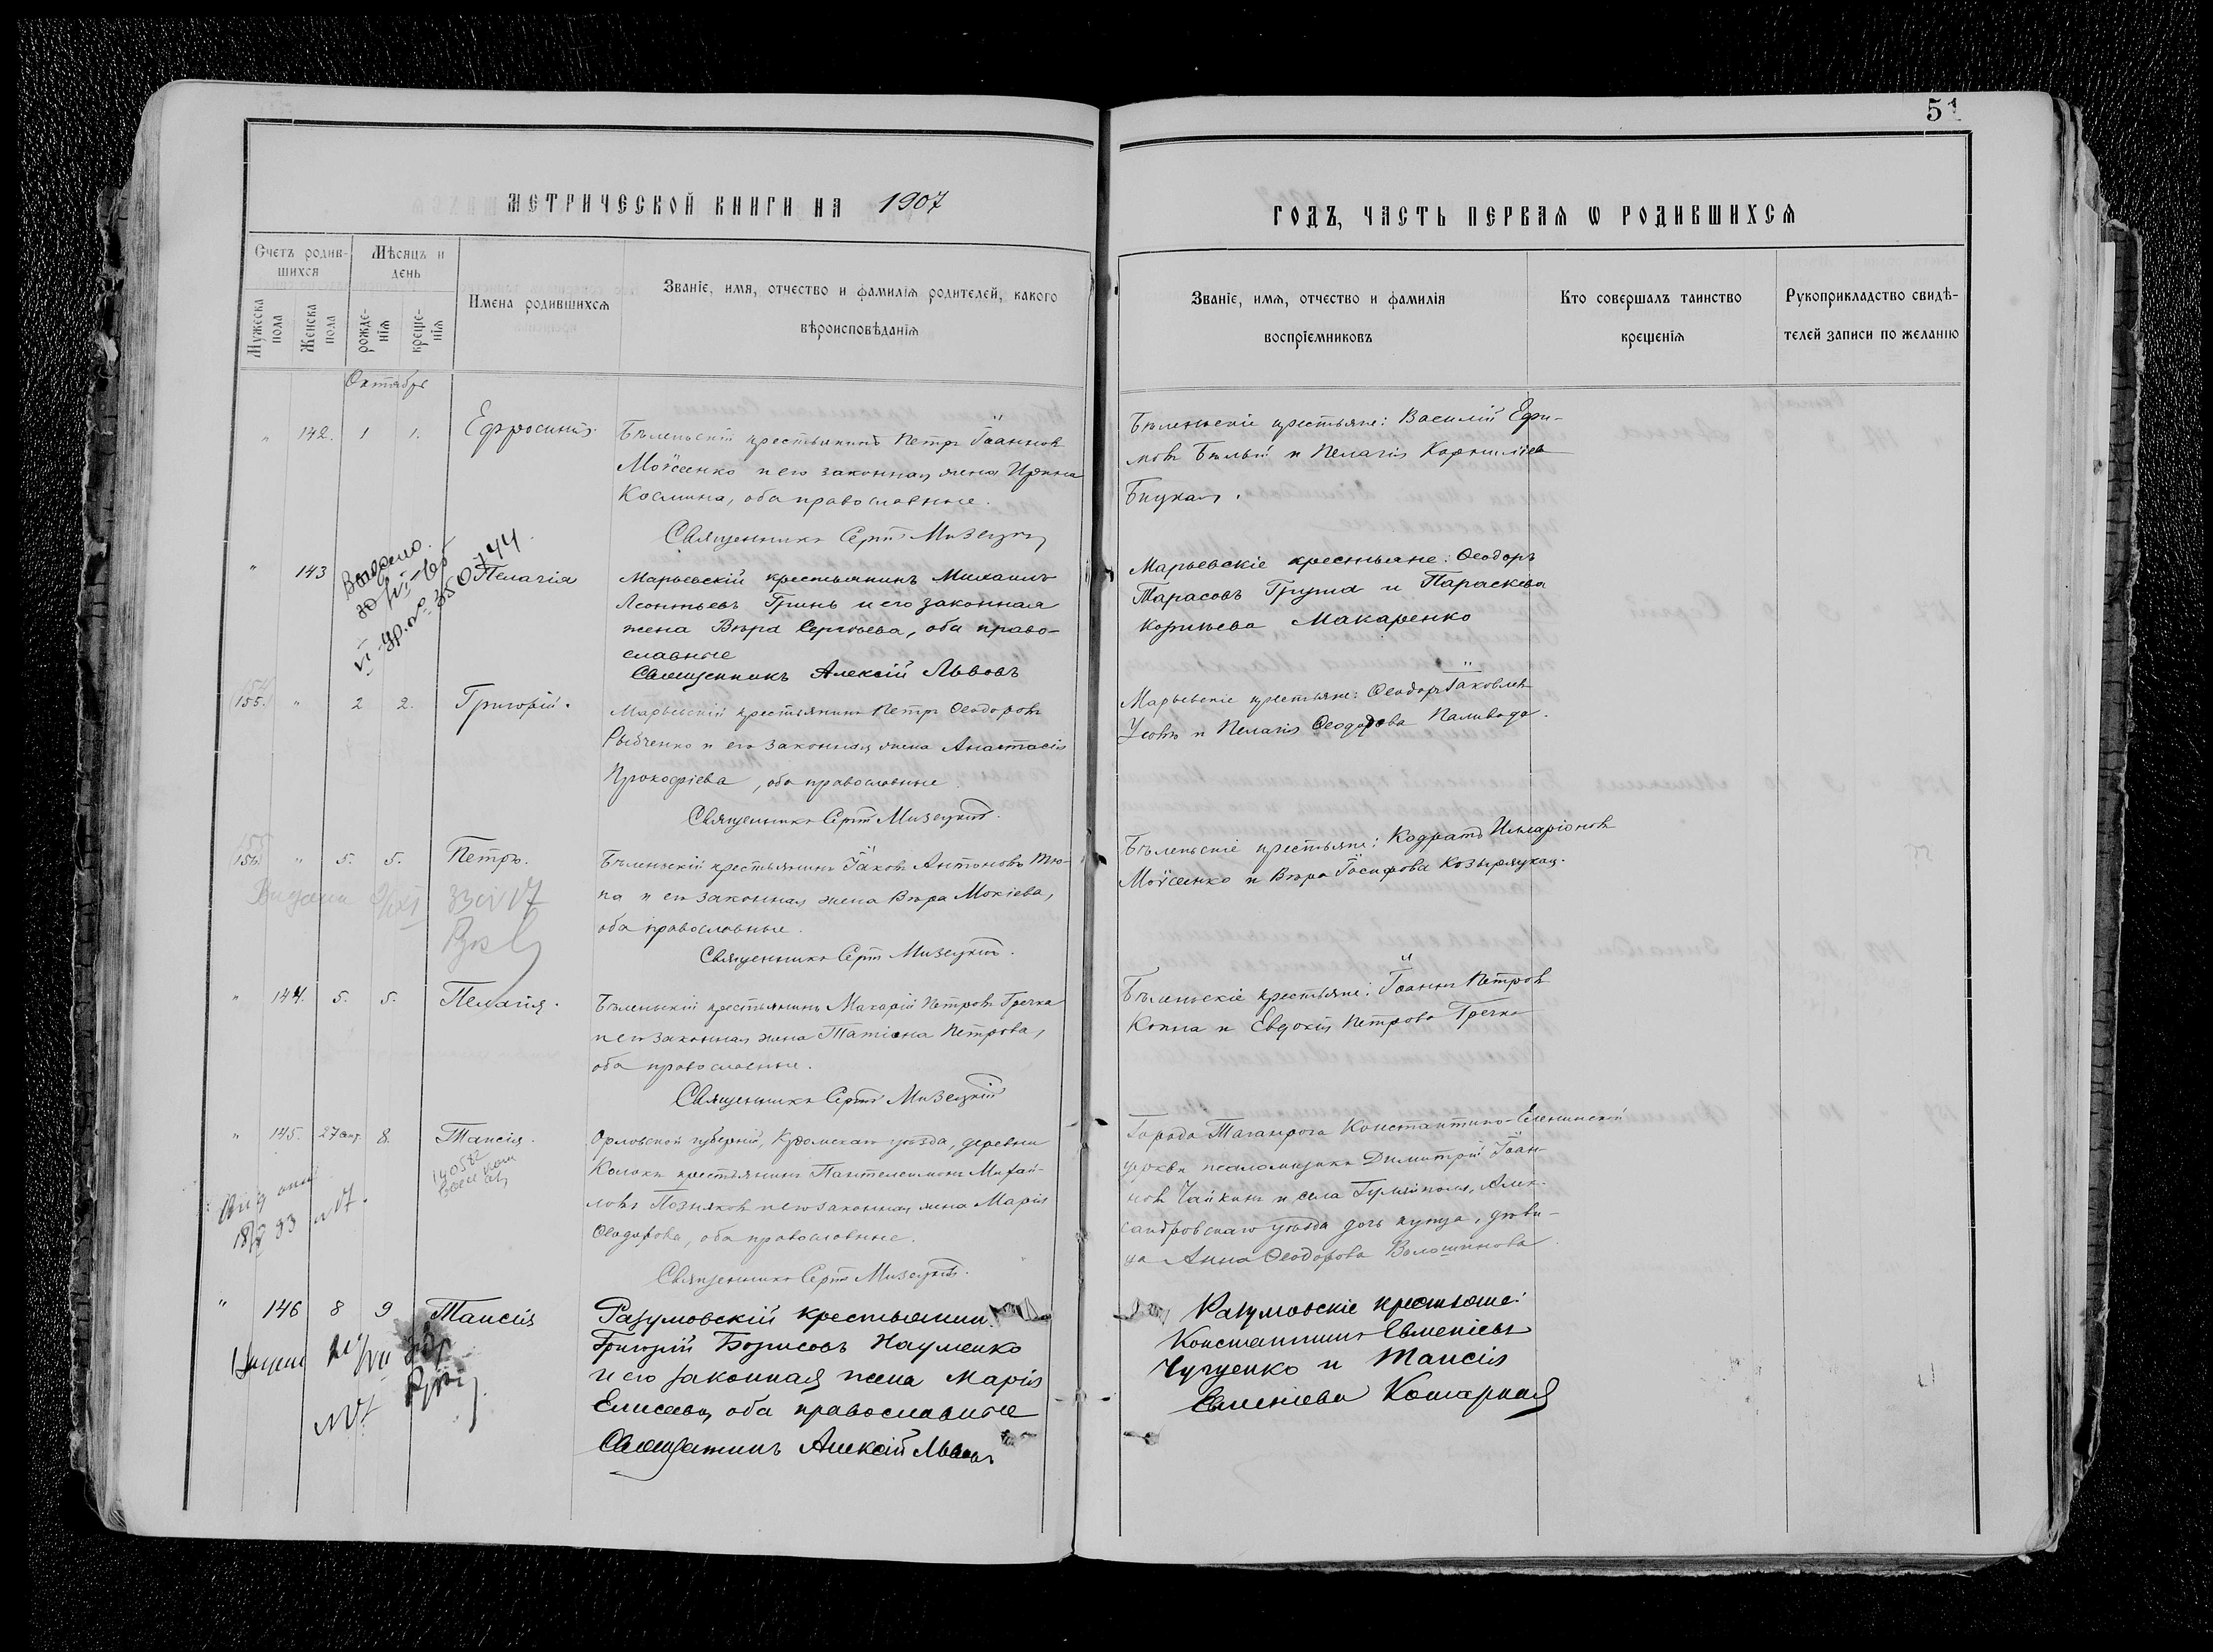 51
МЕТРИЧЕСКОЙ КНИГИ НА 1907
ГОДЪ, ЧАСТЬ ПЕРВАЯ Ѡ РОДИВШИХСЯ
Счетъ родив-
шихся
Мѣсяцъ и
день
Мужеска
пола
Женска
пола
рожде-
нія
креще-
нія
Имена родившихся
Званіе, имя, отчество и фамилія родителей, какого
вѣроисповѣданія
Званіе, имя, отчество и фамилія
воспріемниковъ
Кто совершалъ таинство
крещенія
Рукоприкладство свидѣ-
телей записи по желанію
Октябрь
" 142. 1 1. Ефросинія.
Бѣленьскій крестьянинъ Петръ Іоанновъ
Мойсеенко и его законная жена Ирина
Космина, оба православные.
Священникъ Сергій Мизецкій
Бѣленьскіе крестьяне: Василій Ефи-
мовъ Бѣлый и Пелагія Корнилiева
Бицкая.
" 143 Пелагія
Выдано
Марьевскій крестьянинъ Михаилъ
Леонтьевъ Гринь и его законная
жена Вѣра Сергѣева, оба право-
славные
Священникъ Алексій Львовъ
Марьевскіе крестьяне: Ѳеодоръ
Тарасовъ Груша и Параскева
Корнѣева Макаренко
155. " 2 2. Григорій.
Марьевскій крестьянинъ Петръ Ѳеодоровъ
Рыбченко и его законная жена Анастасія
Прокофіева, оба православные.
Священникъ Сергій Мизецкій.
Марьевскіе крестьяне: Ѳеодоръ Іаковлевъ
Усовъ и Пелагія Ѳеодорова Паливода.
156. " 5. 5. Петръ.
Бѣленьскій крестьянинъ Іаковъ Антоновъ Тю-
па и его законная жена Вѣра Мокіева,
оба православные.
Священникъ Сергій Мизецкій.
Бѣленьскіе крестьяне: Кодратъ Иларіоновъ
Мойсеенко и Вѣра Іосифова Козыряцкая.
" 144. 5. 5. Пелагія.
Бѣленьскій крестьянинъ Макарій Петровъ Гречка
и его законная жена Татіана Петрова,
оба православные.
Священникъ Сергій Мизецкій
Бѣленьскіе крестьяне: Іоаннъ Петровъ
Копна и Евдокія Петрова Гречка
" 145. 27 8. Таисія.
140582
Орловской губерніи, Кромскаго уѣзда, деревни
крестьянинъ Пантелеимонъ Михай-
ловъ Позняковъ и его законная жена Марія
Ѳеодорова, оба православные.
Священникъ Сергій Мизецкій.
Города Таганрога Константино-Еленинской
церкви псаломщикъ Димитрій Іоан-
новъ Чайкинъ и села Гуляйполя, Алек-
сандровскаго уѣзда дочь купца, дѣви-
ца Анна Ѳеодорова Волошинова.
" 146 8 9 Таисія
Разумовскій крестьянин.
Григорій Борисовъ Науменко
и его законная жена Марія
Елисеева, оба православные
Священникъ Алексій Львовъ
Разумовскіе крестьяне:
Константинъ Евменіевъ
и Таисія
Евменіева Кошарная